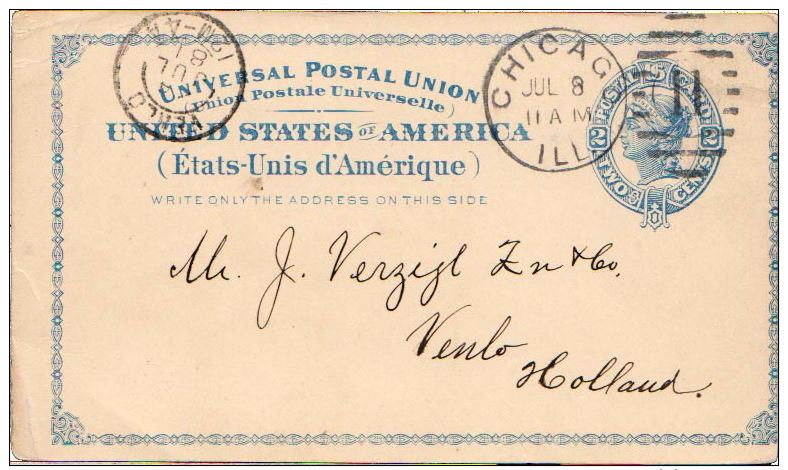 UNIVERSAL POSTAL UNION
(Union Postale Universelle)
UNITED STATES OF AMERICA
(États-Unis d'Amérique)
WRITE ONLY THE ADDRESS ON THIS SIDE
CHICAGO
JUL 8
11 AM
ILL.
POSTAL CARD
2 2
TWO CENTS
VENLO
JUL
Mr. J. Verzijl Zn & Co.
Venlo
Holland.